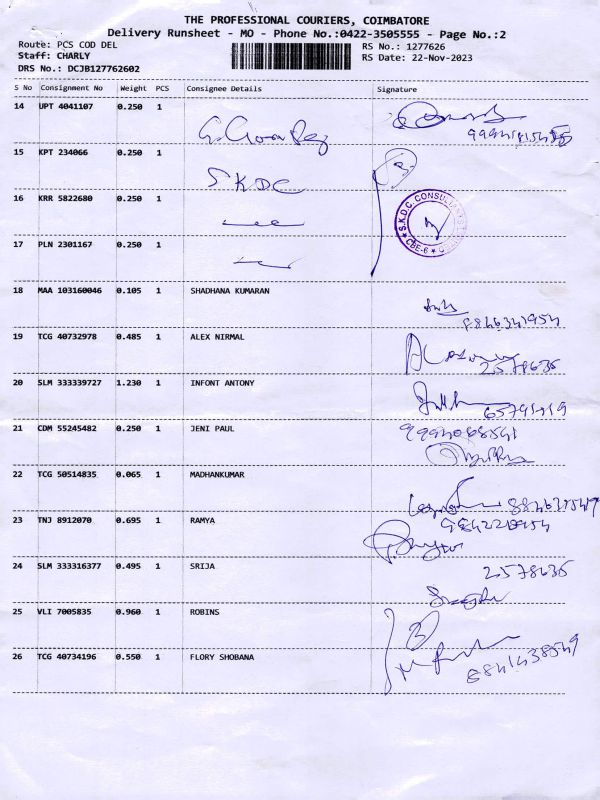 THE PROFESSIONAL COURIERS, COIMBATORE
Delivery Runsheet - MO - Phone No.:0422-3505555 - Page No.:2
Route: PCS COD DEL
RS No.: 1277626
Staff: CHARLY
RS Date: 22-Nov-2023
DRS No.: DCJB127762602
S No Consignment No Weight PCS Consignee Details Signature
14 UPT 4041107 0.250 1
15 KPT 234066 0.250 1
SKDC
16 KRR 5822680 0.250 1
S.K.D.C. CONSULTANTS CBE-6
17 PLN 2301167 0.250 1
18 MAA 103160046 0.105 1 SHADHANA KUMARAN
19 TCG 40732978 0.485 1 ALEX NIRMAL
2578635
20 SLM 333339727 1.230 1 INFONT ANTONY
21 CDM 55245482 0.250 1 JENI PAUL
22 TCG 50514835 0.065 1 MADHANKUMAR
23 TNJ 8912070 0.695 1 RAMYA
24 SLM 333316377 0.495 1 SRIJA
2578635
25 VLI 7005835 0.960 1 ROBINS
26 TCG 40734196 0.550 1 FLORY SHOBANA